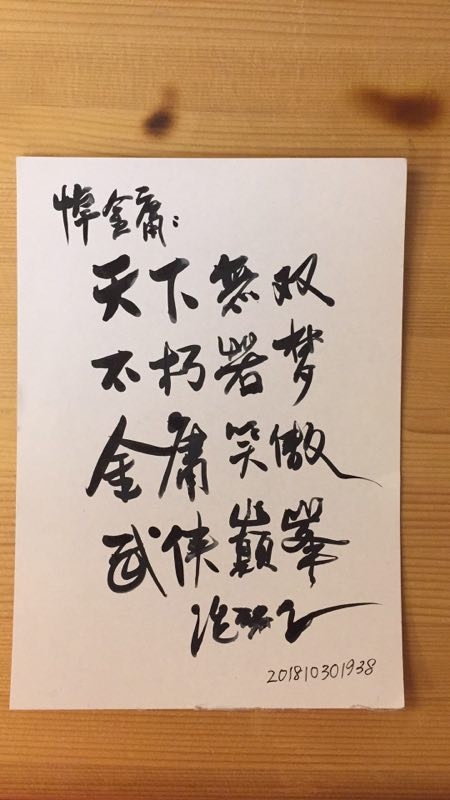 悼金庸：
天下無双
不朽若梦
金庸笑傲
武侠巔峯
201810301938